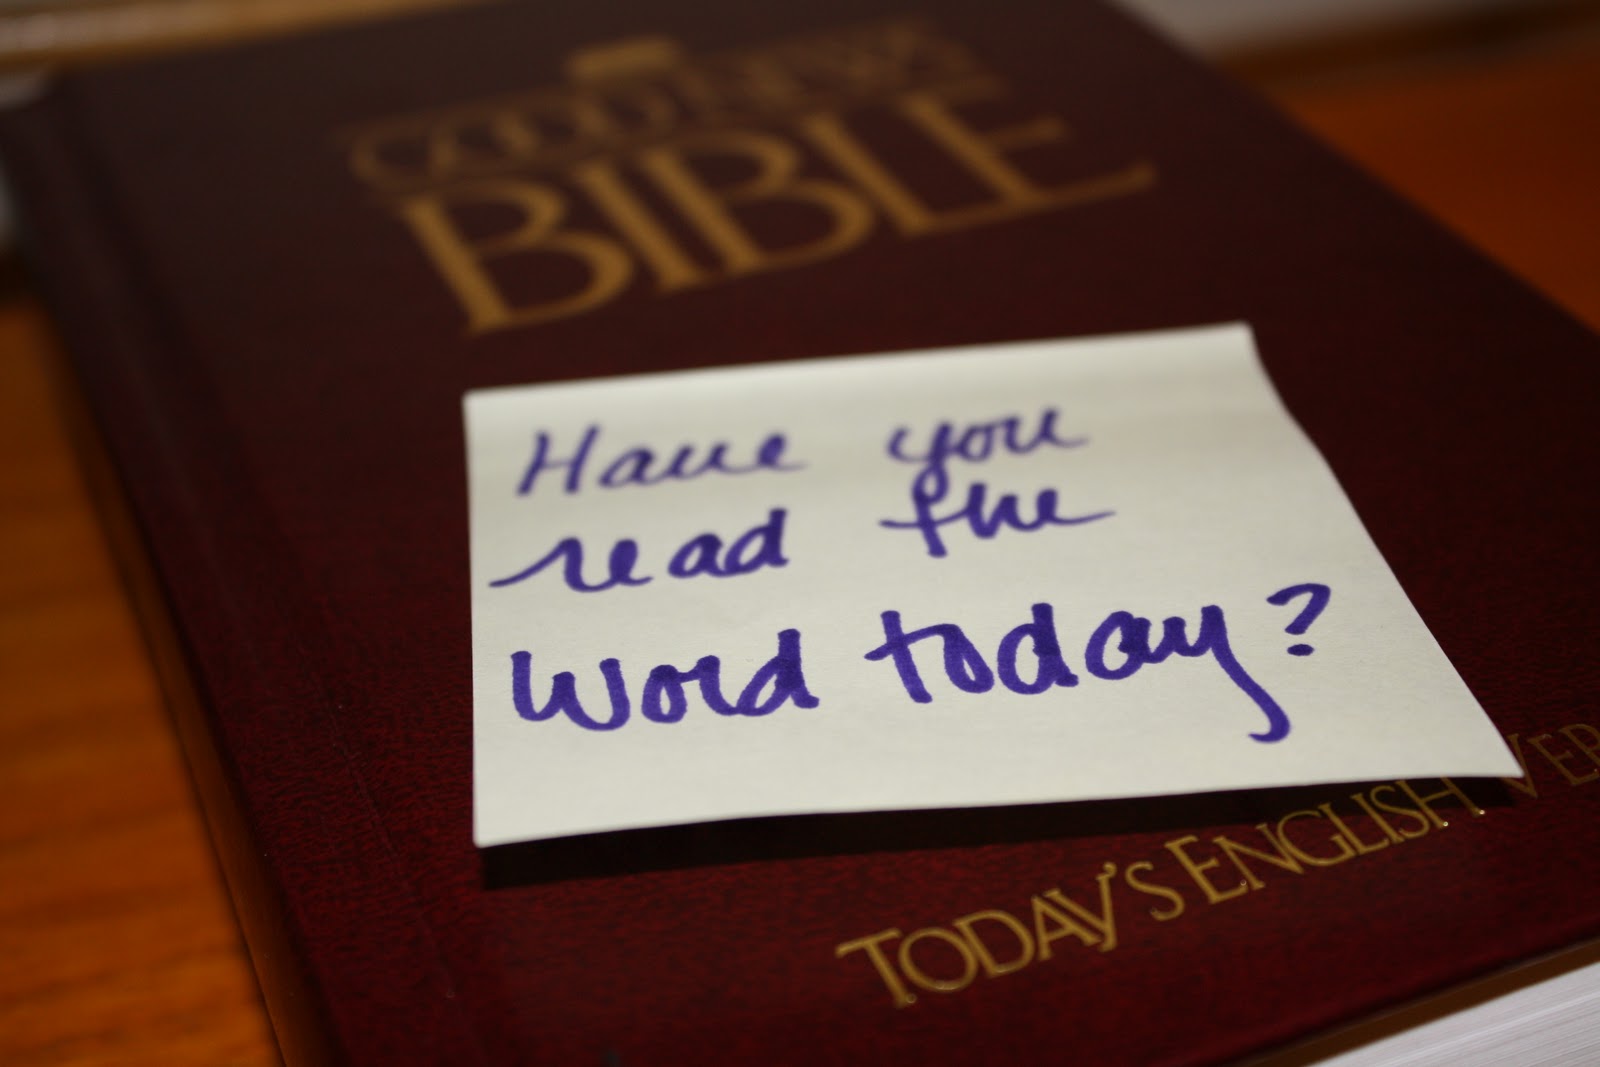 GOOD NEWS
BIBLE
Have you
read the
Word today?
TODAY'S ENGLISH VER